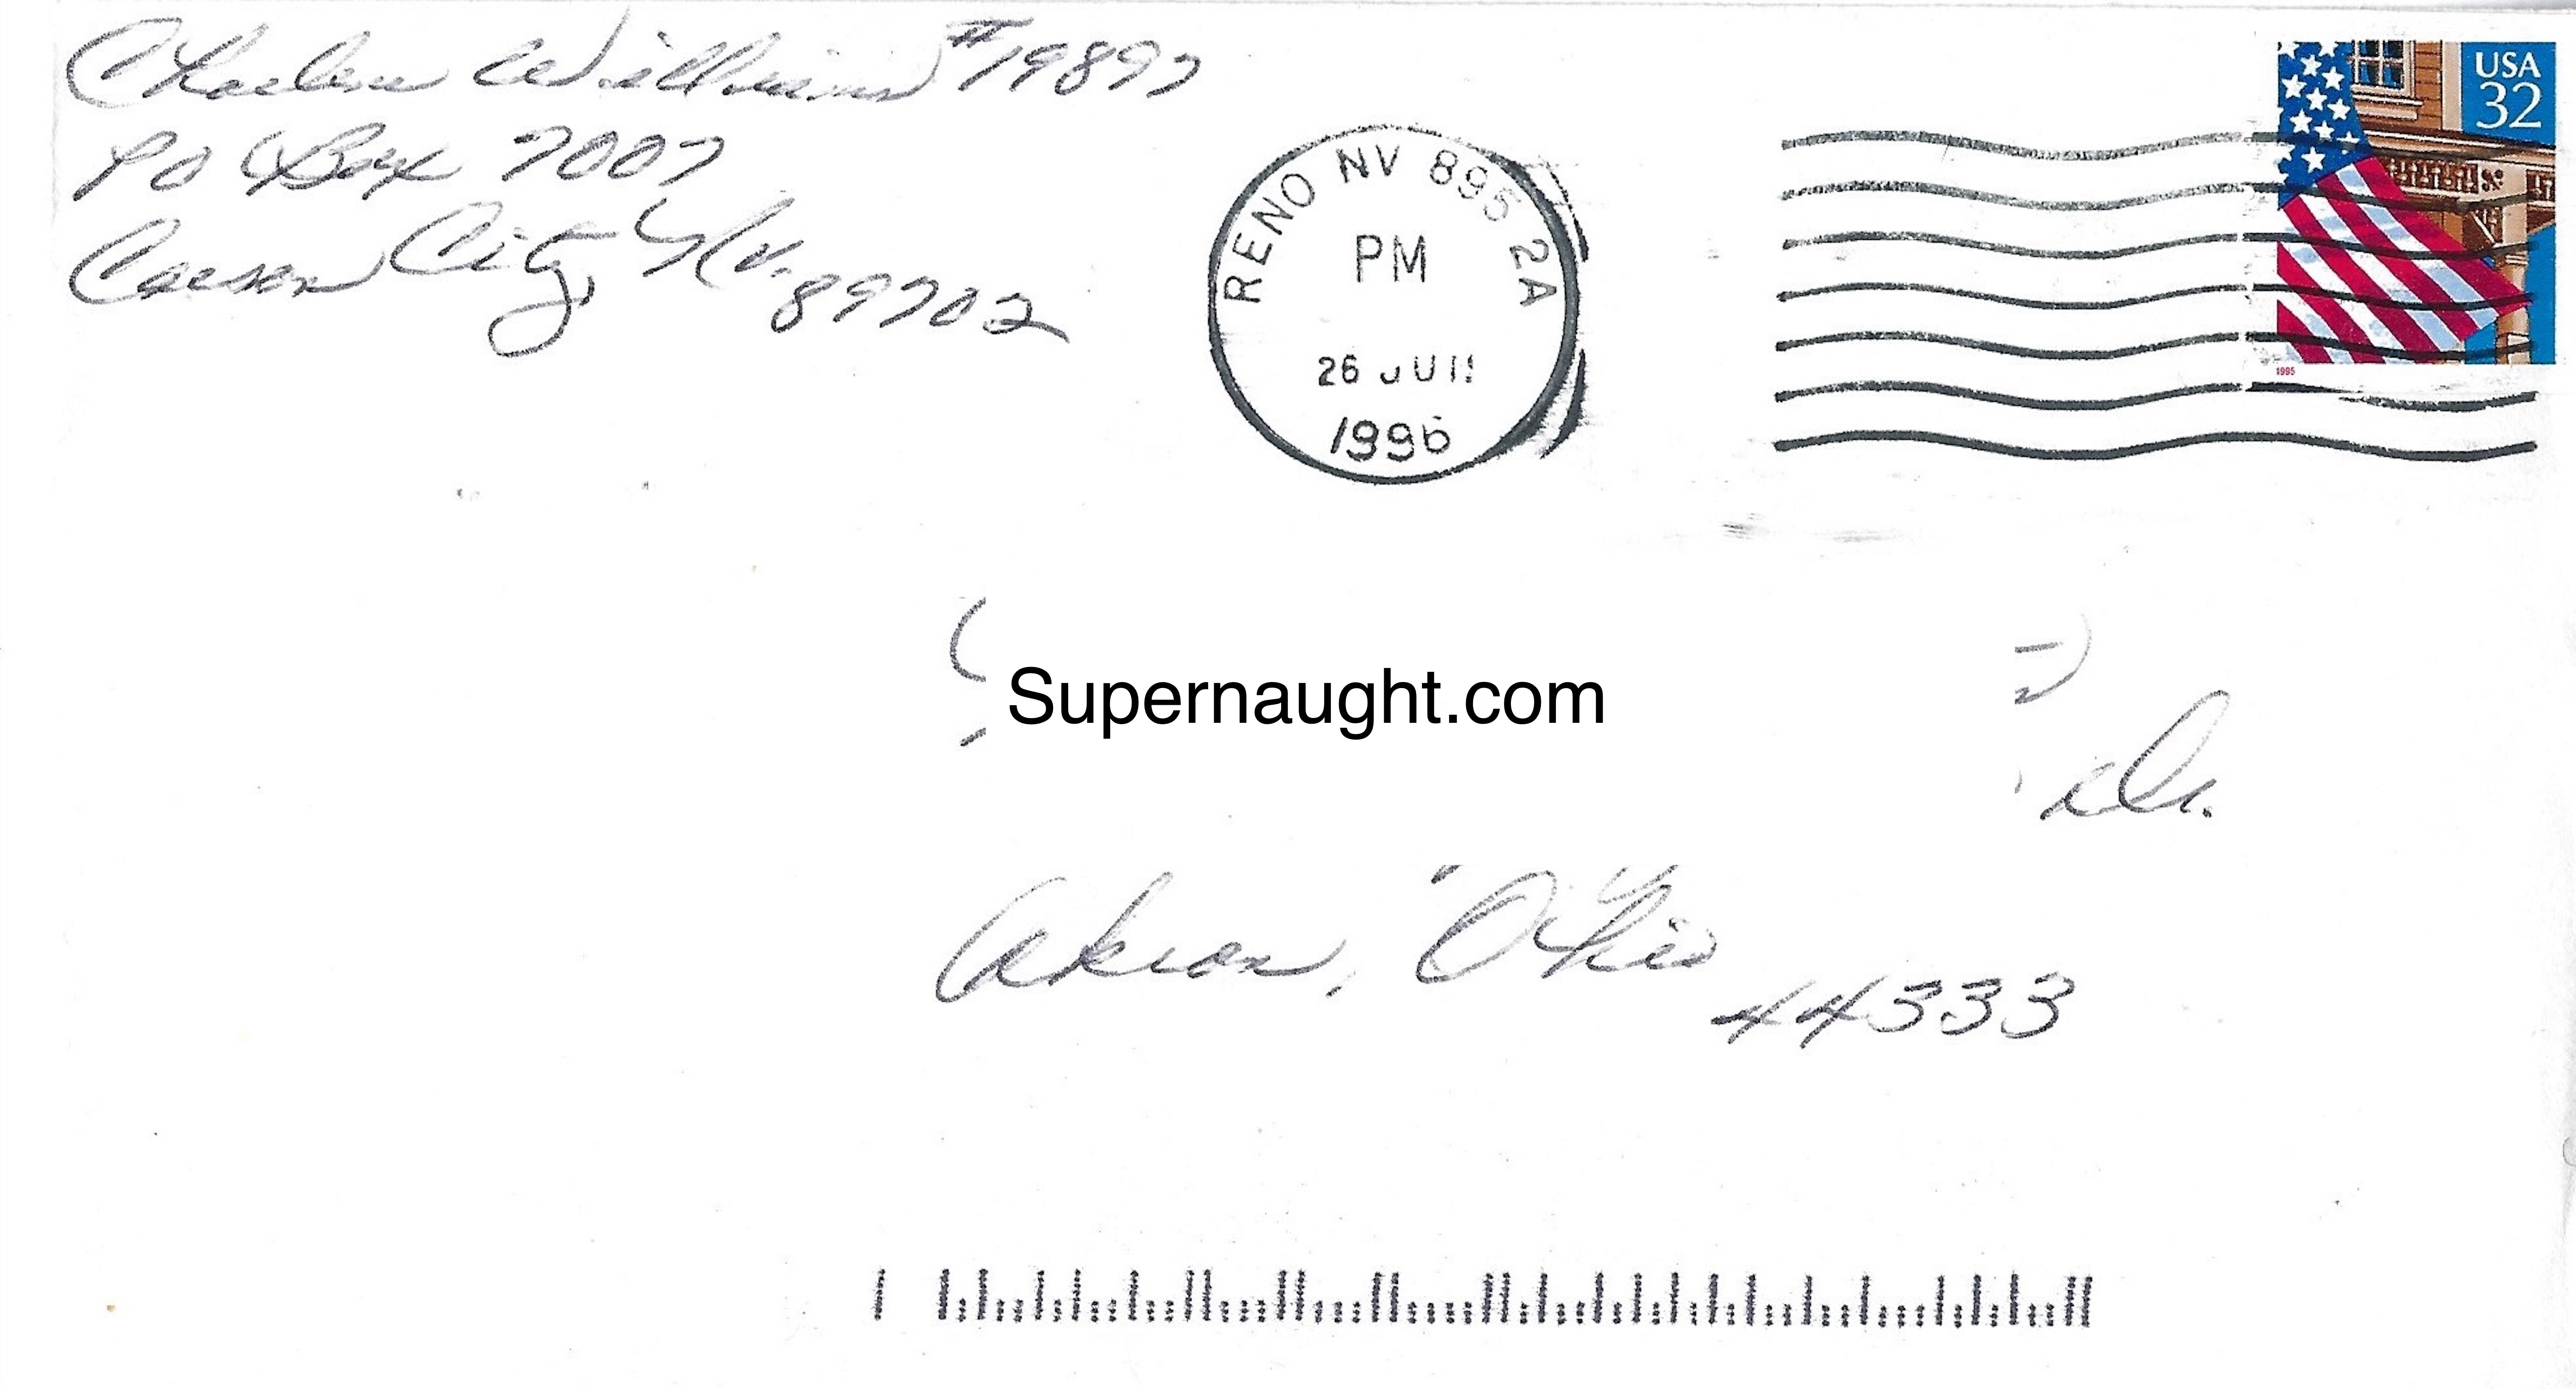 Charlene Williams #19897
PO Box 7007
Carson City, Nv.
89702
RENO NV 895 2A
PM
26 JUN
1996
USA
32
1995
Supernaught.com
Dr.
Akron, Ohio
44333